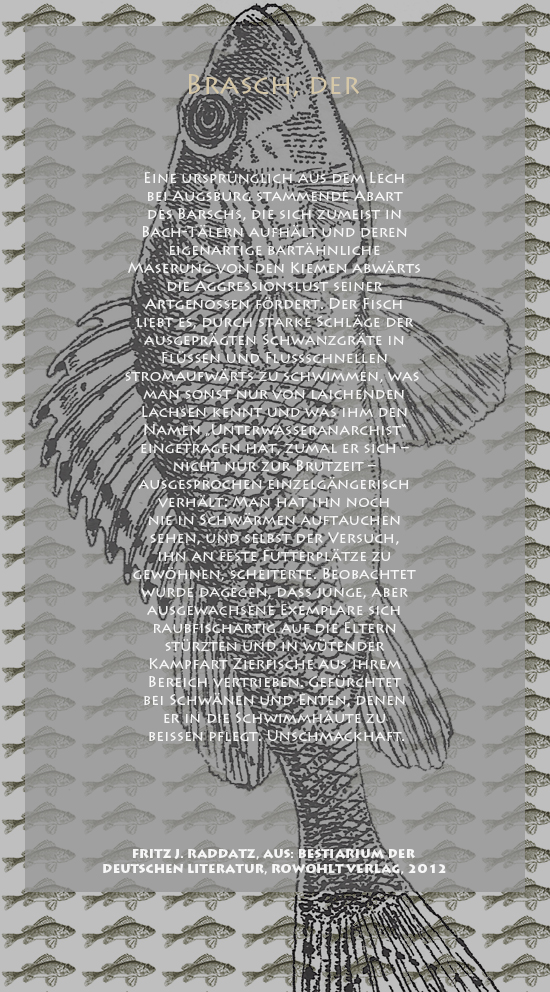 Brasch, der
Eine ursprünglich aus dem Lech
bei Augsburg stammende Abart
des Barschs, die sich zumeist in
Bach-Tälern aufhält und deren
eigenartige bartähnliche
Maserung von den Kiemen abwärts
die Aggressionslust seiner
Artgenossen fördert. Der Fisch
liebt es, durch starke Schläge der
ausgeprägten Schwanzgräte in
Flüssen und Flussschnellen
stromaufwärts zu schwimmen, was
man sonst nur von laichenden
Lachsen kennt und was ihm den
Namen „Unterwasseranarchist“
eingetragen hat, zumal er sich –
nicht nur zur Brutzeit –
ausgesprochen einzelgängerisch
verhält: Man hat ihn noch
nie in Schwärmen auftauchen
sehen, und selbst der Versuch,
ihn an feste Futterplätze zu
gewöhnen, scheiterte. Beobachtet
wurde dagegen, dass junge, aber
ausgewachsene Exemplare sich
raubfischartig auf die Eltern
stürzten und in wütender
Kampfart Zierfische aus ihrem
Bereich vertrieben. Gefürchtet
bei Schwänen und Enten, denen
er in die Schwimmhäute zu
beissen pflegt. Unschmackhaft.
Fritz J. Raddatz, aus: Bestiarium der
deutschen Literatur, Rowohlt Verlag, 2012